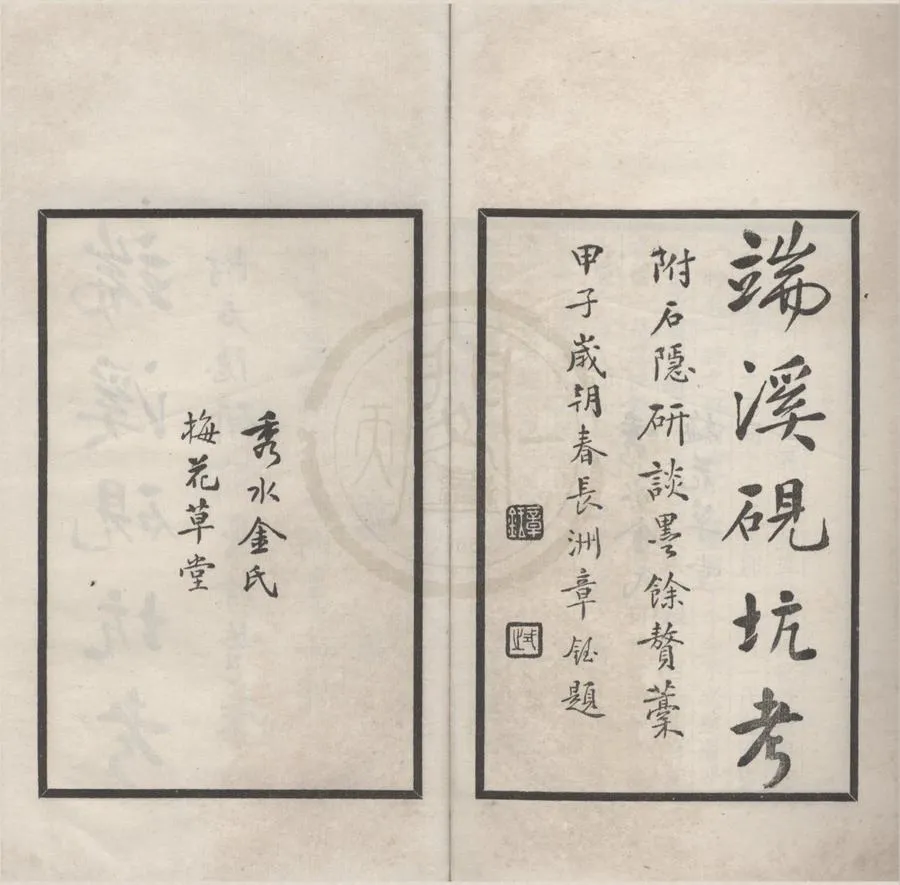 端溪硯坑考
附石隱研談墨餘贅藁
甲子歲朝春長洲章鈺題
章鈺
秀水金氏
梅花草堂